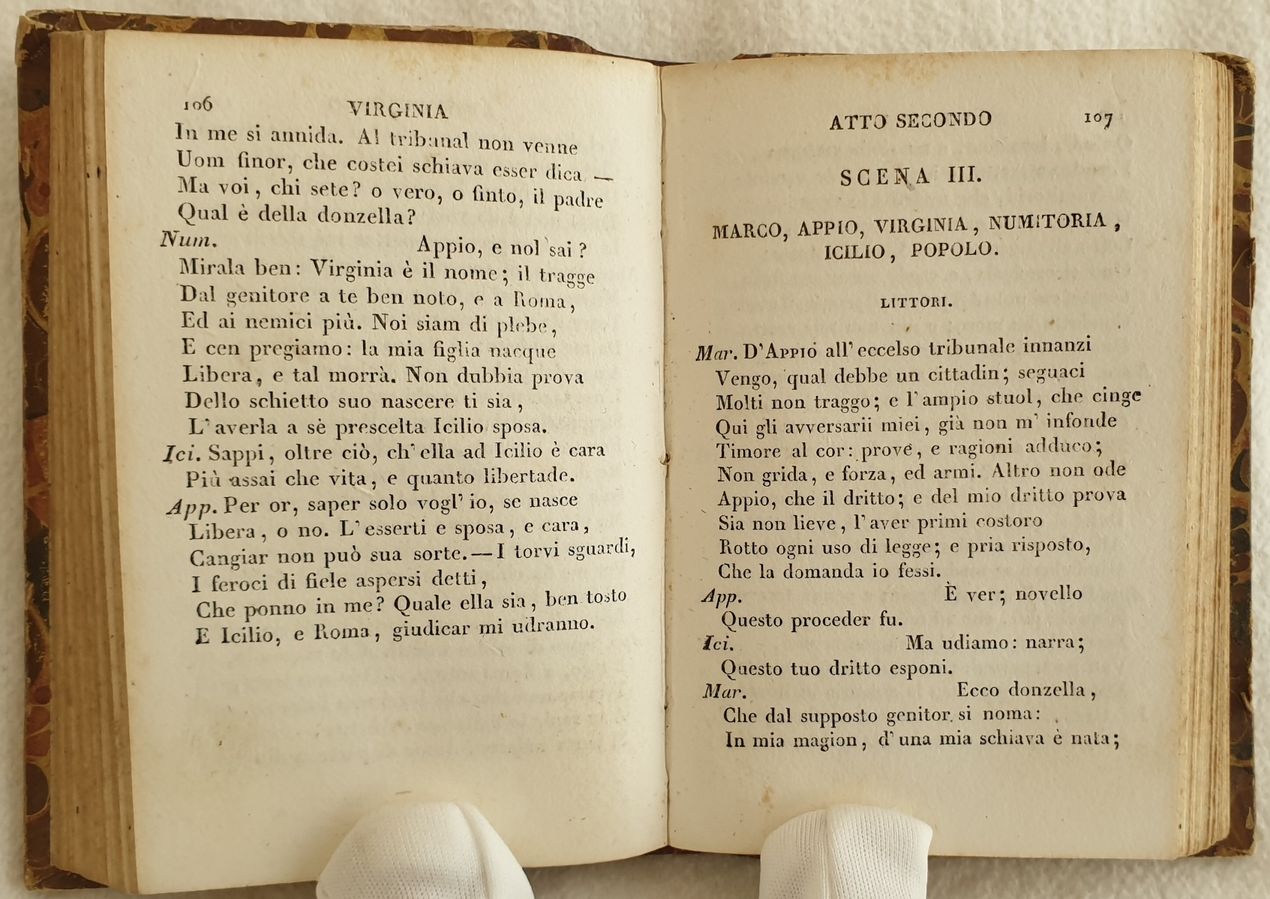 106
VIRGINIA
In me si annida. Al tribunal non venne
Uom finor, che costei schiava esser dica —
Ma voi, chi sete? o vero, o finto, il padre
Qual è della donzella?
Num. Appio, e nol sai?
Mirala ben: Virginia è il nome; il tragge
Dal genitore a te ben noto, e a Roma,
Ed ai nemici più. Noi siam di plebe,
E cen pregiamo: la mia figlia nacque
Libera, e tal morrà. Non dubbia prova
Dello schietto suo nascere ti sia,
L'averla a sè prescelta Icilio sposa.
Ici. Sappi, oltre ciò, ch'ella ad Icilio è cara
Più assai che vita, e quanto libertade.
App. Per or, saper solo vogl' io, se nasce
Libera, o no. L'esserti e sposa, e cara,
Cangiar non può sua sorte. — I torvi sguardi,
I feroci di fiele aspersi detti,
Che ponno in me? Quale ella sia, ben tosto
E Icilio, e Roma, giudicar mi udranno.
ATTO SECONDO
107
SCENA III.
MARCO, APPIO, VIRGINIA, NUMITORIA,
ICILIO, POPOLO.
LITTORI.
Mar. D'APPIO all'eccelso tribunale innanzi
Vengo, qual debbe un cittadin; seguaci
Molti non traggo; e l'ampio stuol, che cinge
Qui gli avversarii miei, già non m' infonde
Timore al cor: prove, e ragioni adduco;
Non grida, e forza, ed armi. Altro non ode
Appio, che il dritto; e del mio dritto prova
Sia non lieve, l'aver primi costoro
Rotto ogni uso di legge; e pria risposto,
Che la domanda io fessi.
App. È ver; novello
Questo proceder fu.
Ici. Ma udiamo: narra;
Questo tuo dritto esponi.
Mar. Ecco donzella,
Che dal supposto genitor si noma:
In mia magion, d'una mia schiava è nata;